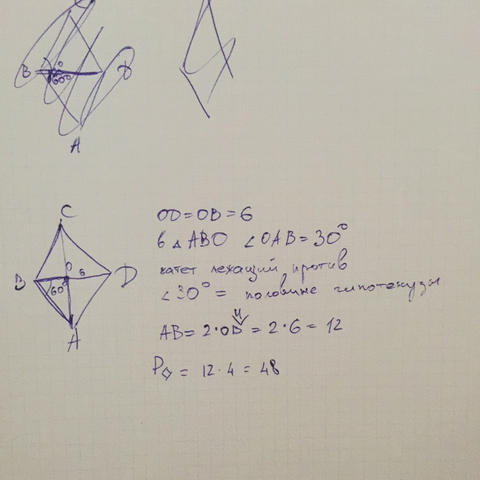 B O D
60°
A
C
B O 6 D
60°
A
OD=OB=6
в △ ABO ∠OAB=30°
катет лежащий против
∠30° = половине гипотенузы
AB= 2·OD = 2·6 = 12
P◇ = 12·4 = 48